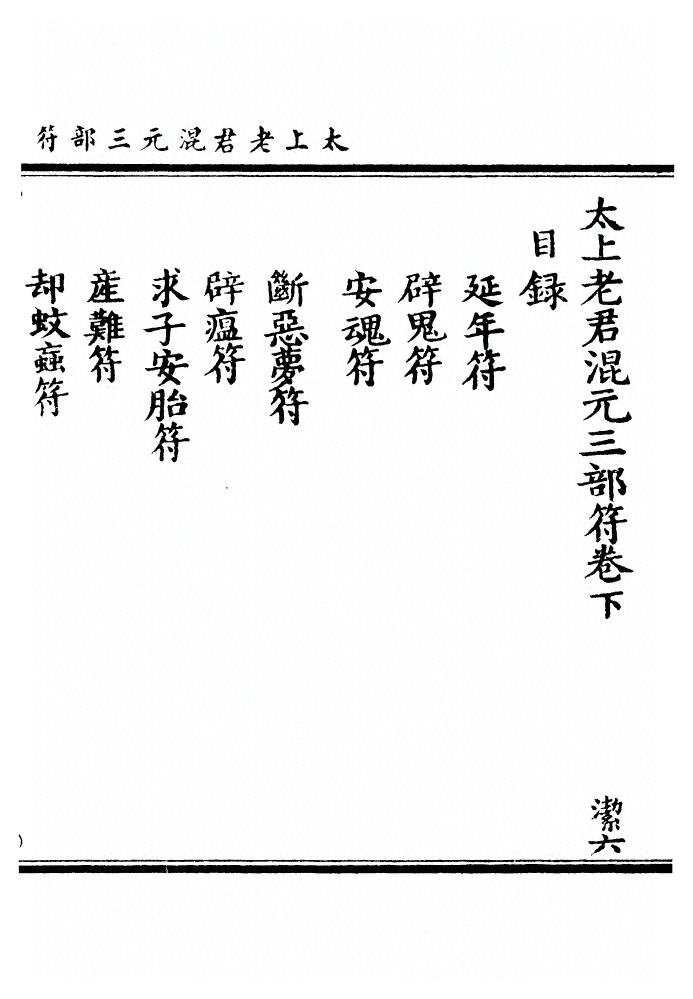 太上老君混元三部符
太上老君混元三部符卷下 潔六
目錄
延年符
辟鬼符
安魂符
斷惡夢符
辟瘟符
求子安胎符
產難符
却蚊䖝符